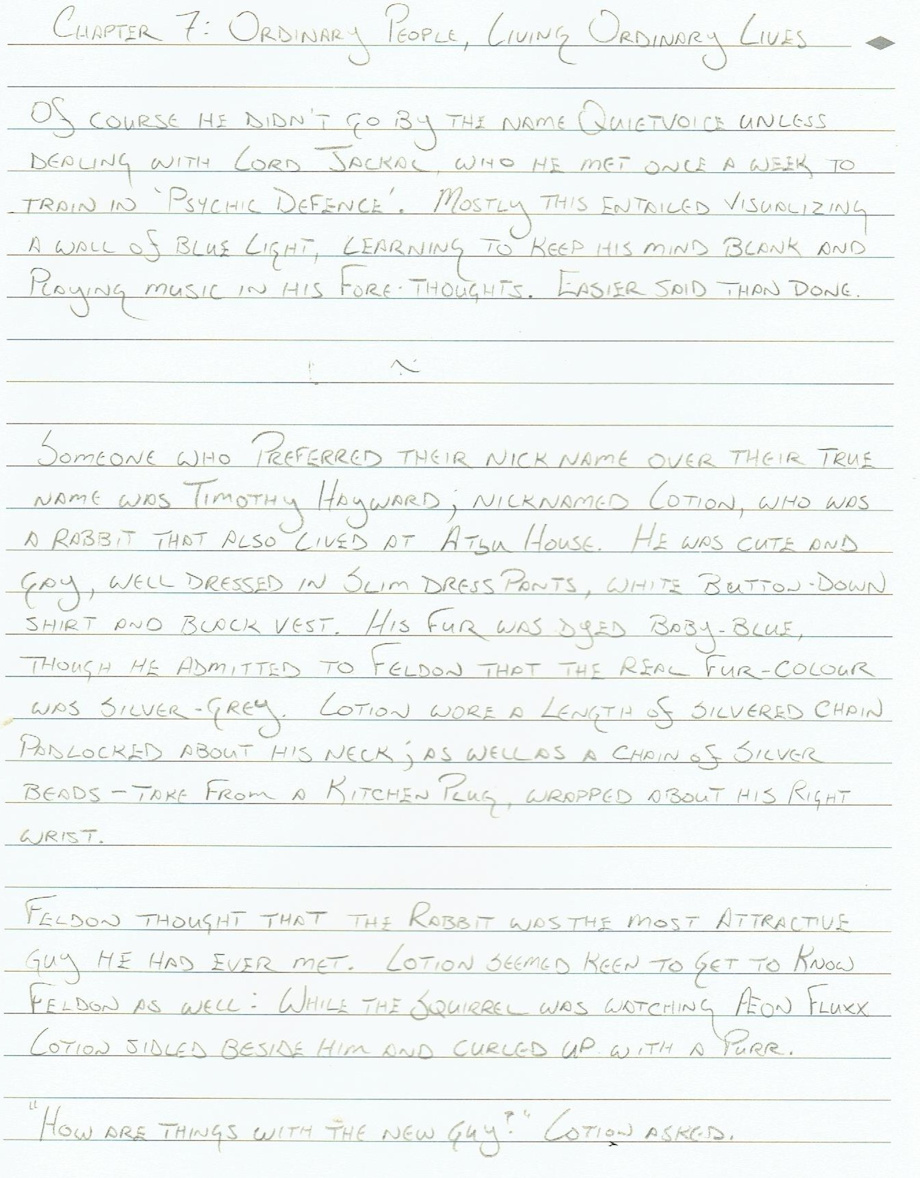 Chapter 7: Ordinary People, Living Ordinary Lives
Of course he didn't go by the name Quietvoice unless
dealing with Lord Jackal, who he met once a week to
train in 'Psychic Defence'. Mostly this entailed visualizing
a wall of Blue Light, learning to keep his mind blank and
Playing music in his Fore-thoughts. Easier said than done.
Someone who Preferred their nick name over their true
name was Timothy Hayward; nicknamed Lotion, who was
a rabbit that also lived at Atsu House. He was cute and
gay, well dressed in Slim Dress Pants, white Button-Down
shirt and black vest. His Fur was dyed Baby-Blue,
though he admitted to Feldon that the real fur-colour
was silver-grey. Lotion wore a length of silvered chain
Padlocked about his neck; as well as a chain of Silver
beads - take from a Kitchen Plug, wrapped about his Right
wrist.
Feldon thought that the Rabbit was the most Attractive
guy he had ever met. Lotion seemed keen to get to know
Feldon as well: While the Squirrel was watching Æon Fluxx
Lotion sidled beside him and curled up with a Purr.
"How are things with the new guy?" Lotion asked.